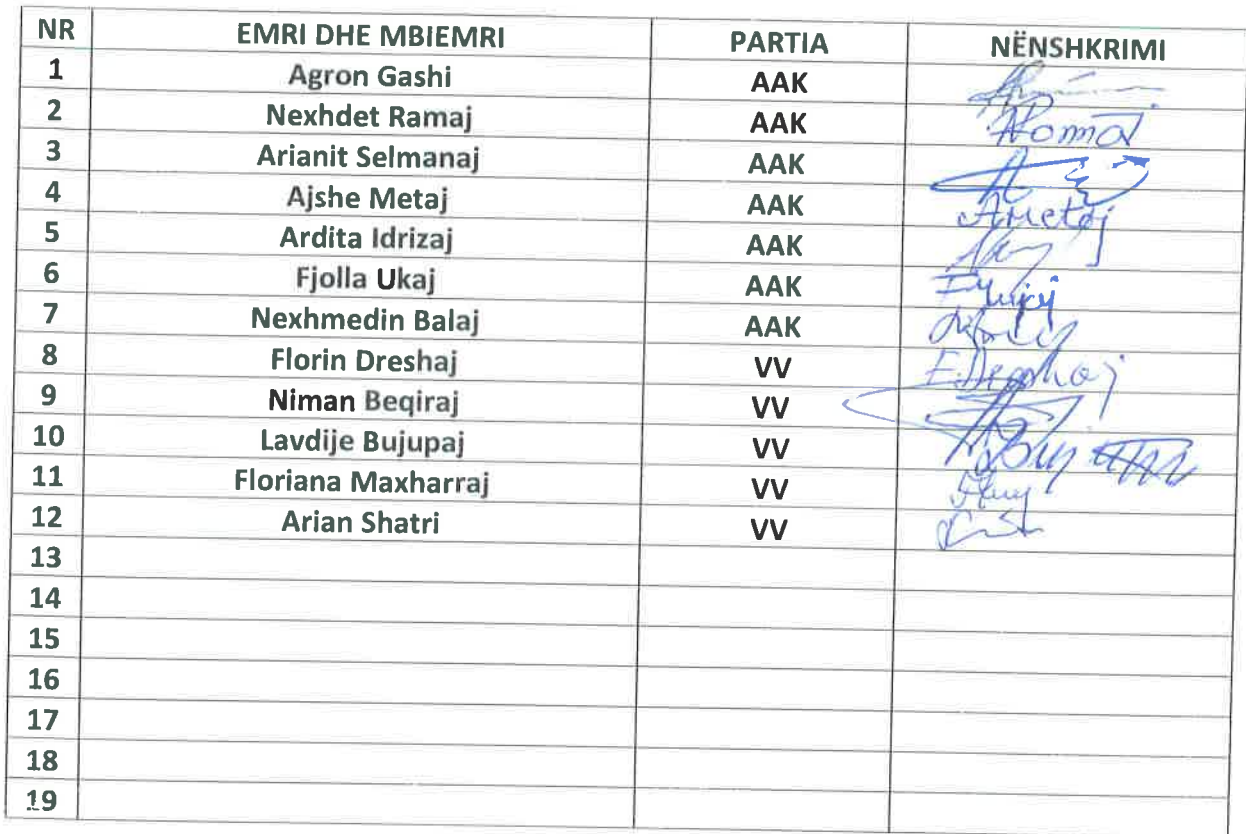 NR EMRI DHE MBIEMRI PARTIA NËNSHKRIMI
1 Agron Gashi AAK
2 Nexhdet Ramaj AAK
3 Arianit Selmanaj AAK
4 Ajshe Metaj AAK Ametaj
5 Ardita Idrizaj AAK
6 Fjolla Ukaj AAK
7 Nexhmedin Balaj AAK
8 Florin Dreshaj VV
9 Niman Beqiraj VV
10 Lavdije Bujupaj VV
11 Floriana Maxharraj VV
12 Arian Shatri VV
13
14
15
16
17
18
19